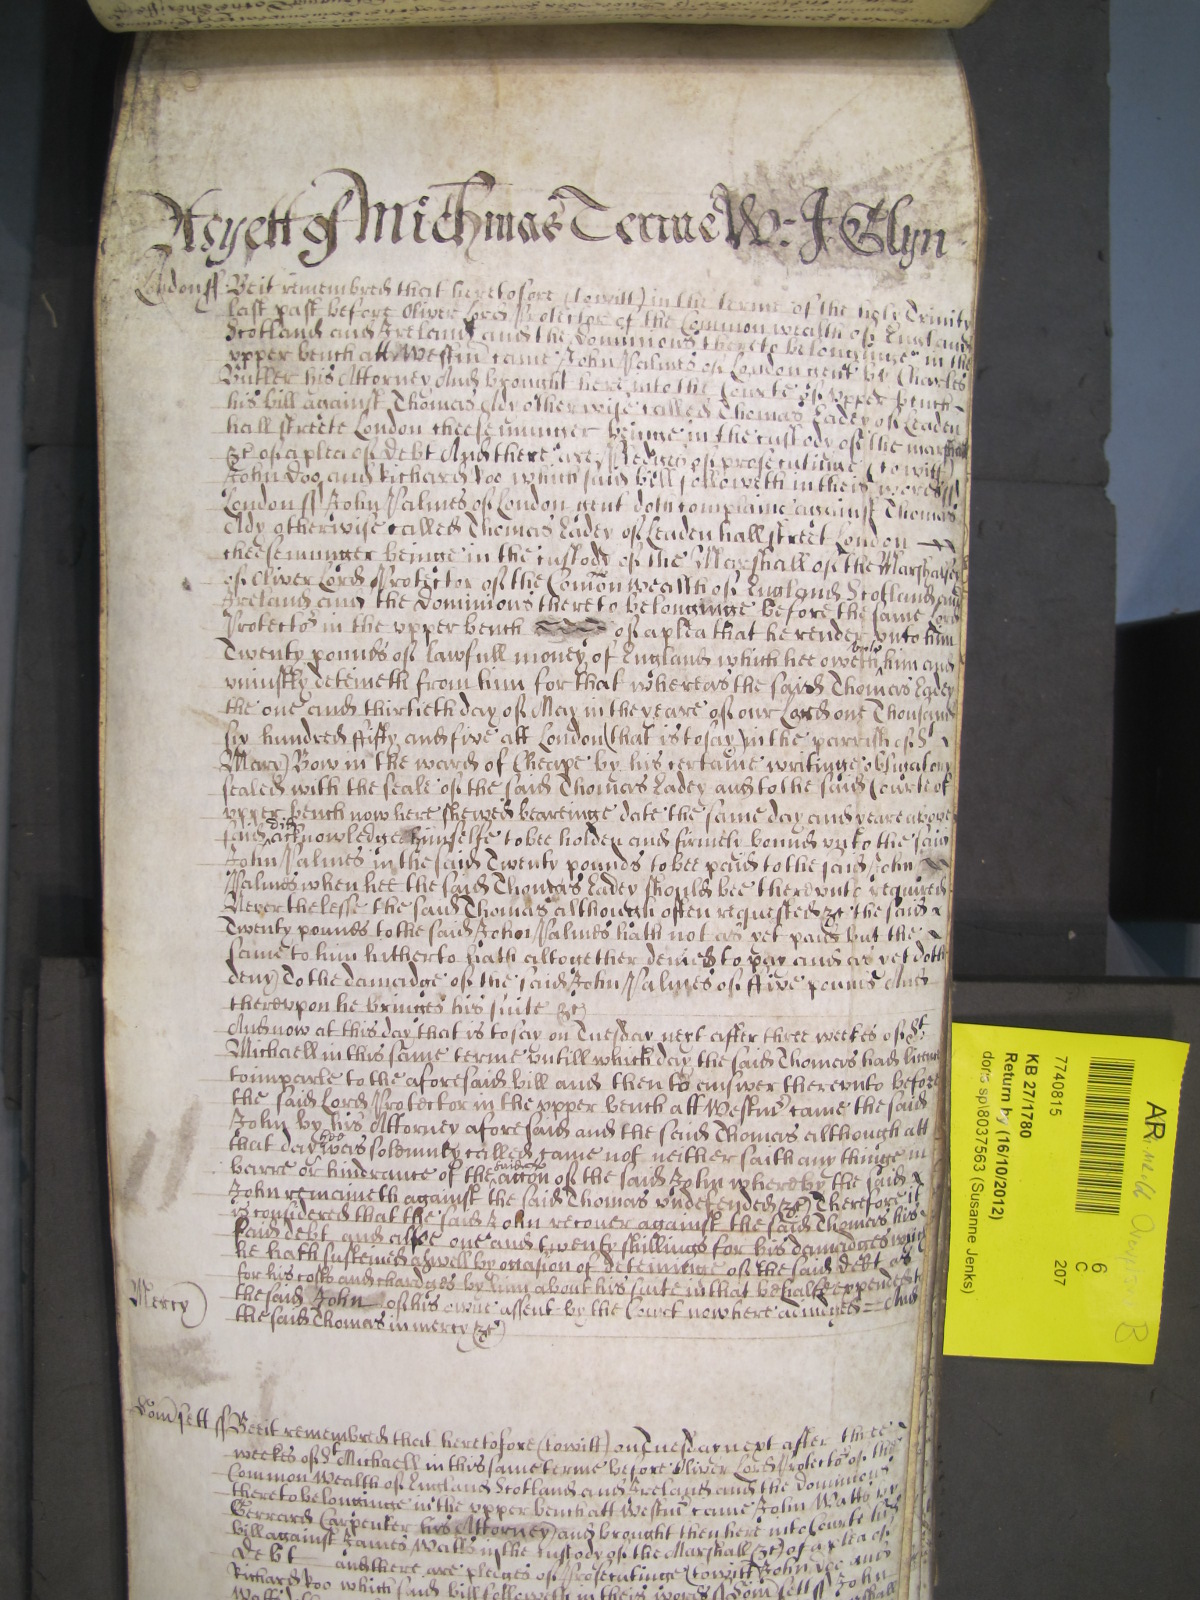 As yett of Michmas Terme W: J Glyn
London ss Beit remembred that heretofore (to witt) in the terme of the holy Trinity
last past before Oliver Lord Protector of the Common wealth of England
Scotland and Ireland and the Dominions thereto belonginge in the
vpper bench att Westmr came John Palmes of London gent by Charles
Butler his Attorney And brought here into the Courte of vpper bench
his bill against Thomas Ady otherwise called Thomas Eadey of Leaden
hall streete London cheesemunger beinge in the custody of the marshall
&c of a plea of Debt And there are Pledges of prosecutinge (to witt)
John Doo and Richard Roo which said bill followeth in theis words ss
London ss John Palmes of London gent doth complaine against Thomas
Ady otherwise called Thomas Eadey of Leaden hall street London
cheesemunger beinge in the custody of the Marshall of the Marshalsey
of Oliver Lord Protector of the Comon wealth of England Scotland and
Ireland and the Dominions thereto belonginge before the same Lord
Protector in the vpper bench of a plea that he render vnto him
Twenty pounds of lawfull money of England which hee oweth vnto him and
vniustly deteineth from him for that whereas the said Thomas Eadey
the one and thirtieth day of May in the yeare of our Lord one Thousand
six hundred ffifty and five att London (that is to say) in the parrish of St
Mary Bow in the ward of Cheape by his certaine writinge obligatory
sealed with the seale of the said Thomas Eadey and to the said Courte of
vpper bench now here shewed bearinge date the same day and yeare above
said did acknowledge himselfe to bee holden and firmely bound vnto the said
John Palmes in the said Twenty pounds to bee paid to the said John
Palmes when hee the said Thomas Eadey should bee therevnto required
Neverthelesse the said Thomas although often requested &c the said
Twenty pounds to the said John Palmes hath not as yet paid but the
same to him hitherto hath altogether denied to pay and as yet doth
deny To the damadge of the said John Palmes of ffive pounds And
therevpon he bringes his suite &c
And now at this day that is to say on Tuesday next after three weekes of St
Michaell in this same terme vntill which day the said Thomas had licence
to imparle to the aforesaid bill and then to answer therevnto before
the said Lord Protector in the vpper bench att Westmr came the said
John by his Attorney aforesaid and the said Thomas although att
that day hee was solemnly called came not neither saith any thinge in
barre or hindrance of the said accon of the said John whereby the said
John remaineth against the said Thomas vndefended (&c) Therefore it
is considered that the said John recover against the said Thomas his
said debt and alsoe one and twenty shillings for his damadges which
he hath susteined aswell by occasion of deteininge of the said Debt as
for his costs and chardges by him about his suite in that behalfe expended to
Mercy the said John of his owne assent by the Court now here adiudged And
the said Thomas in mercy (&c)
Somsett ss Beeit remembred that heretofore (to witt) on Tuesday next after three
weekes of St Michaell in this same terme before Oliver Lord Protector of the
Common Wealth of England Scotland and Ireland and the dominions
thereto belonginge in the vpper bench att Westmr came John Watts by
Gerrard Carpenter his Attorney and brought then here into Courte his
bill against James Watts in the custody of the Marshall (&c) of a plea of
Debt and there are pledges of Prosecutinge (to witt) John Doo and
Richard Roo which said bill followeth in theis words ss Somsett ss John
AR
6
C
7740815 207
KB 27/1780
Return by (16/10/2012)
doris sp\8037563 (Susanne Jenks)
B